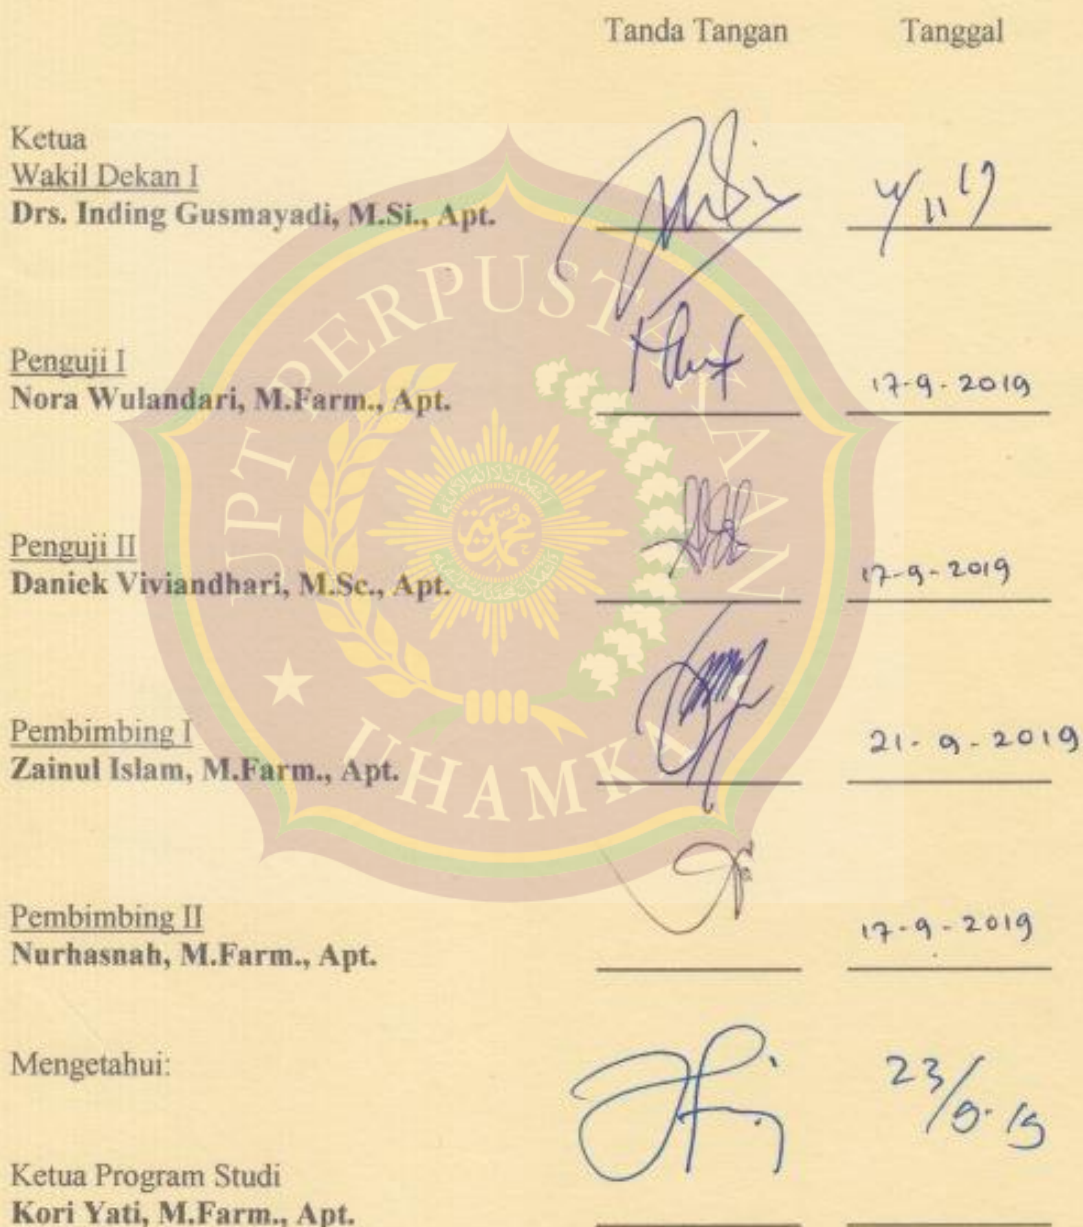 Tanda Tangan Tanggal
Ketua
Wakil Dekan I
Drs. Inding Gusmayadi, M.Si., Apt. 4/11 19
Penguji I
Nora Wulandari, M.Farm., Apt. 17-9-2019
Penguji II
Daniek Viviandhari, M.Sc., Apt. 17-9-2019
Pembimbing I
Zainul Islam, M.Farm., Apt. 21-9-2019
Pembimbing II
Nurhasnah, M.Farm., Apt. 17-9-2019
Mengetahui: 23/9-19
Ketua Program Studi
Kori Yati, M.Farm., Apt.
UPT PERPUSTAKAAN
UHAMKA